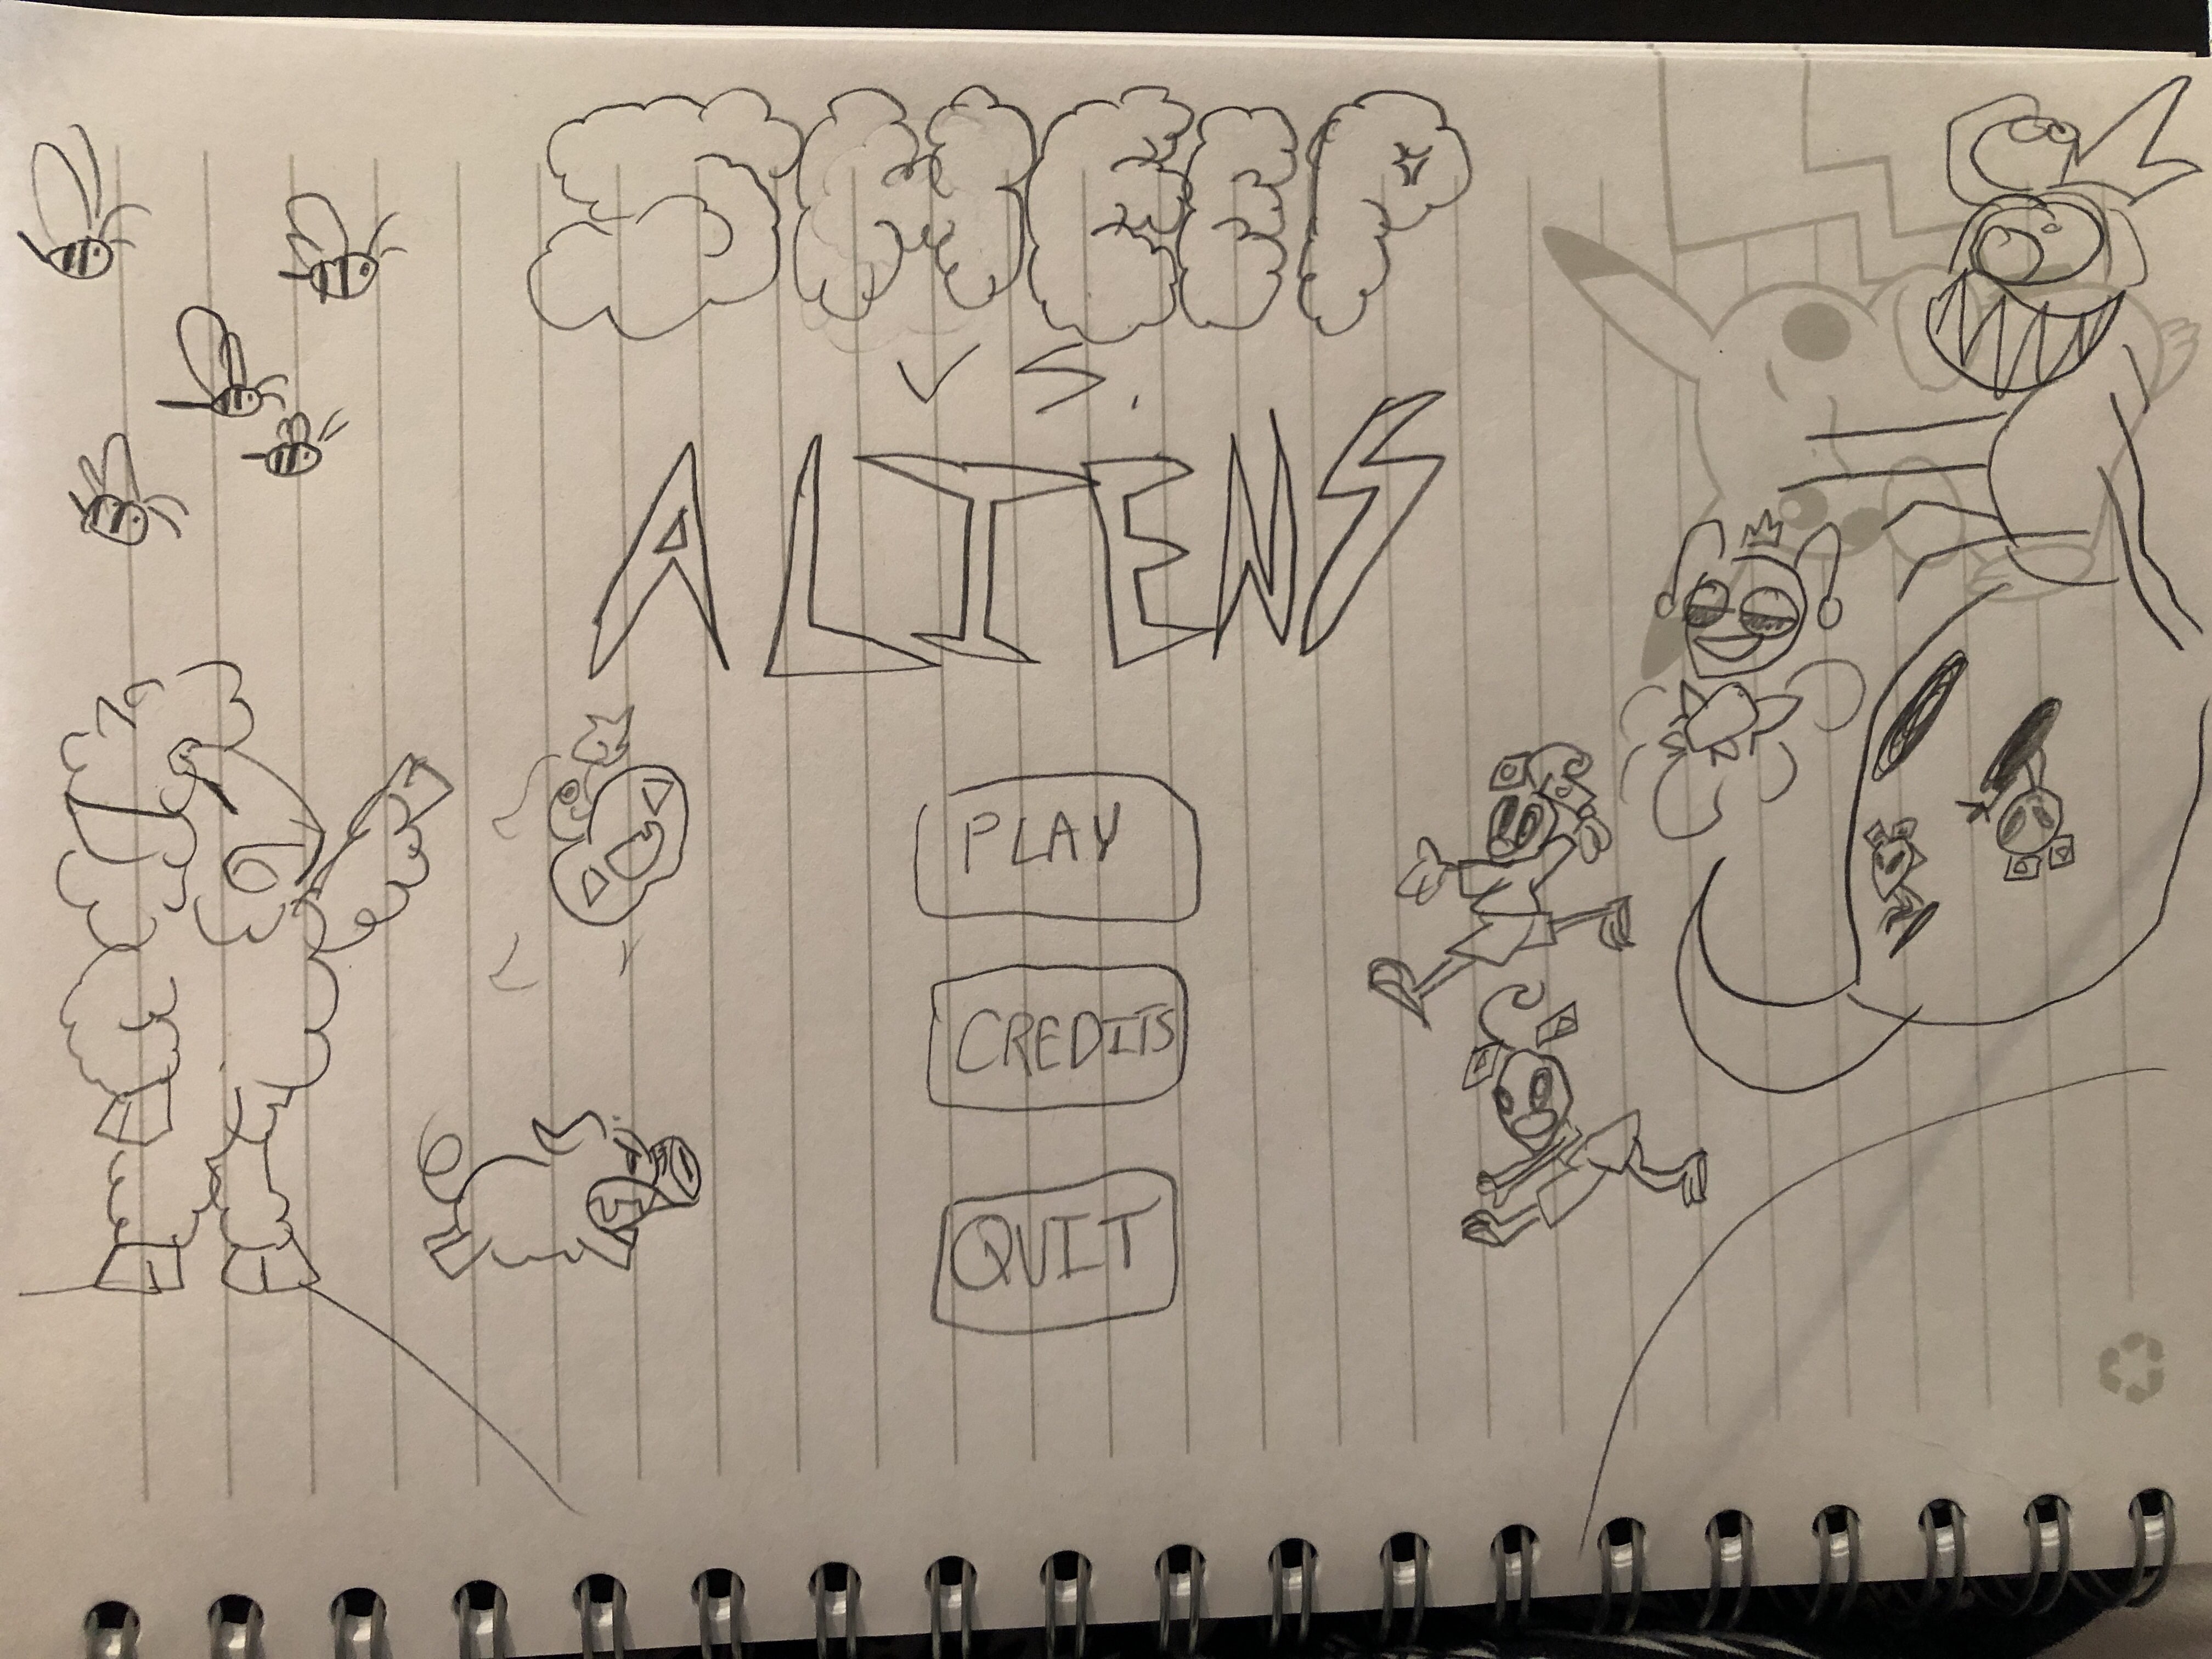 SHEEP
VS.
ALIENS
PLAY
CREDITS
QUIT